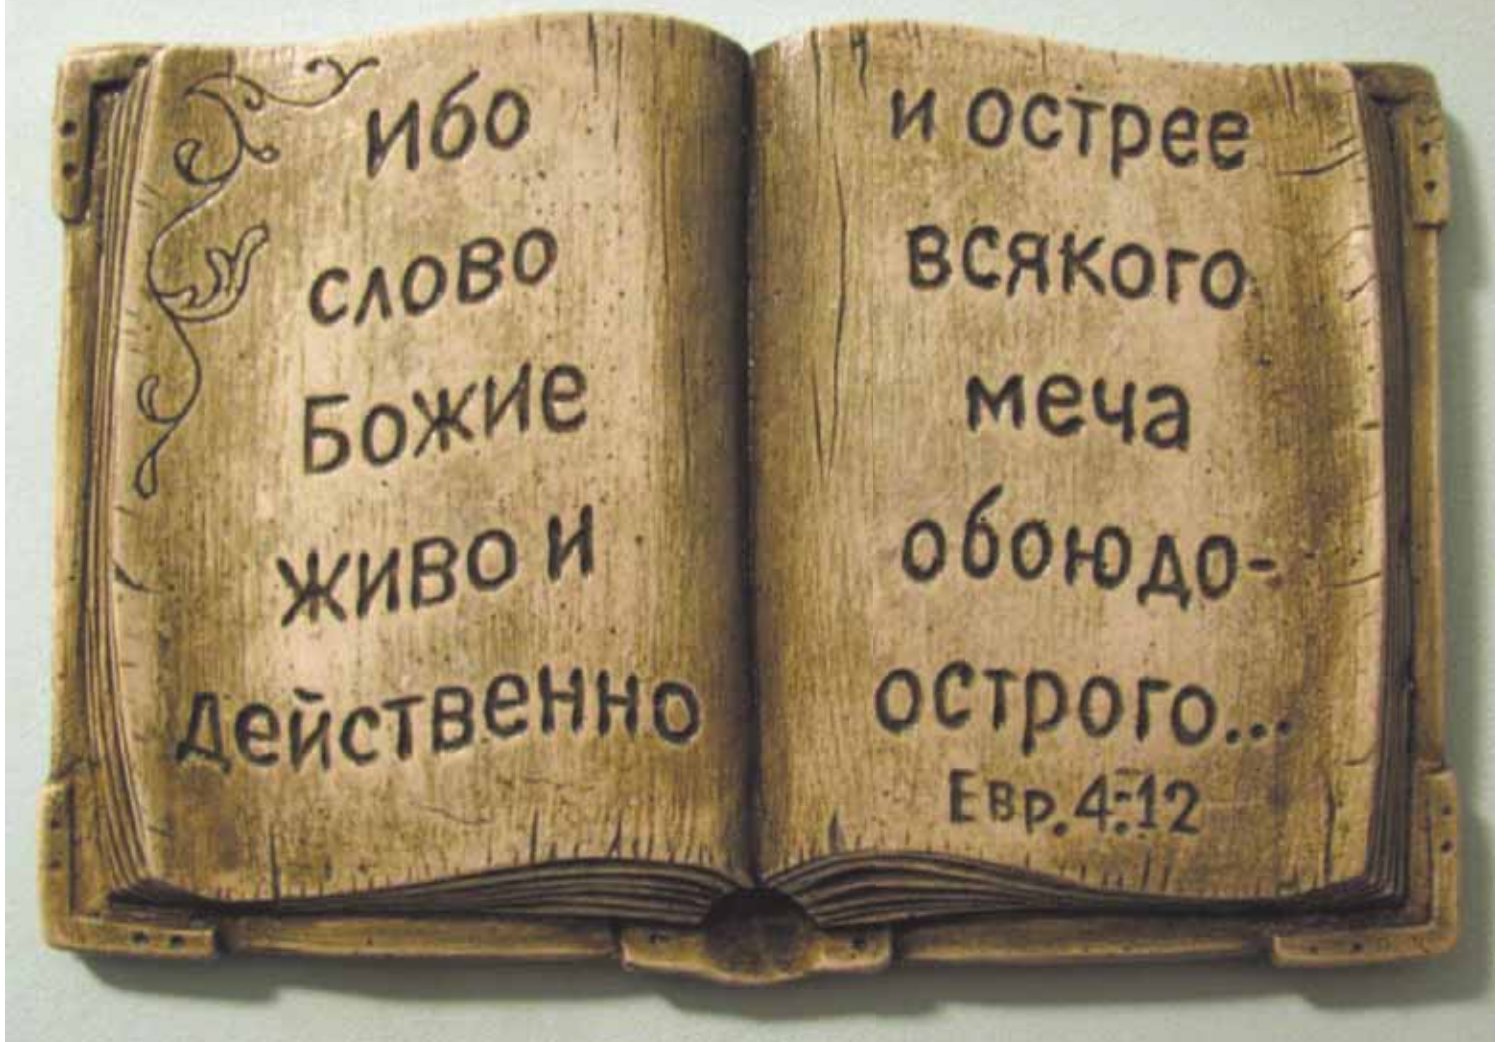 Ибо
слово
Божие
живо и
действенно
и острее
всякого
меча
обоюдо-
острого...
Евр.4:12